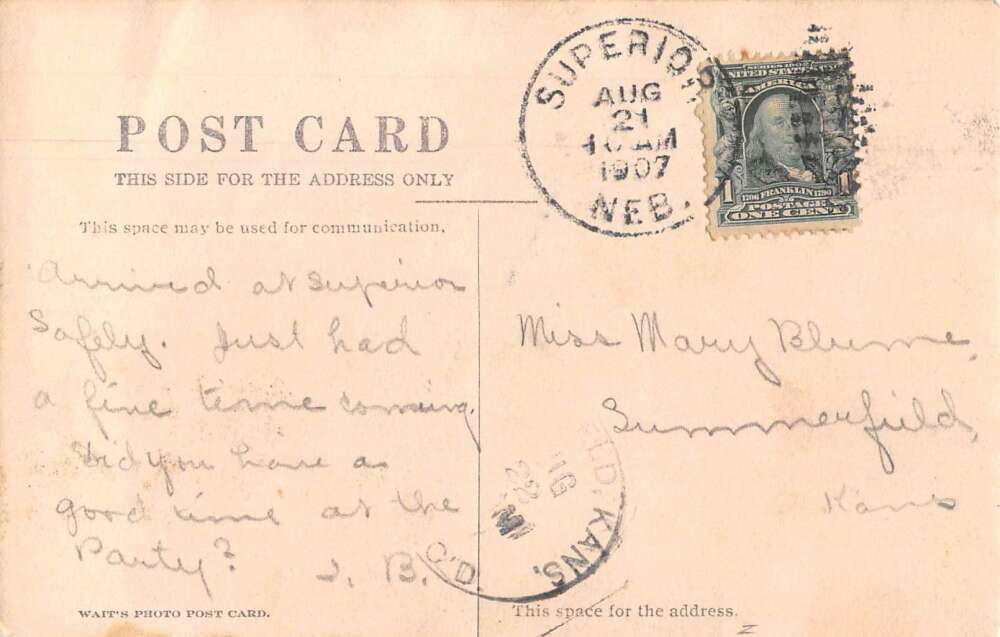 POST CARD
THIS SIDE FOR THE ADDRESS ONLY
This space may be used for communication.
Arrived at Superior
Safely. Just had
a fine time coming.
Did you have a
good time at the
Party?
J. B.
WAIT'S PHOTO POST CARD.
SUPERIOR
AUG
21
10 AM
1907
NEB.
SERIES 1902
UNITED STATES OF
AMERICA
1 FRANKLIN 1
POSTAGE
ONE CENT
Miss Mary Blume,
Summerfield,
Kans
ELD, KANS.
22
This space for the address.